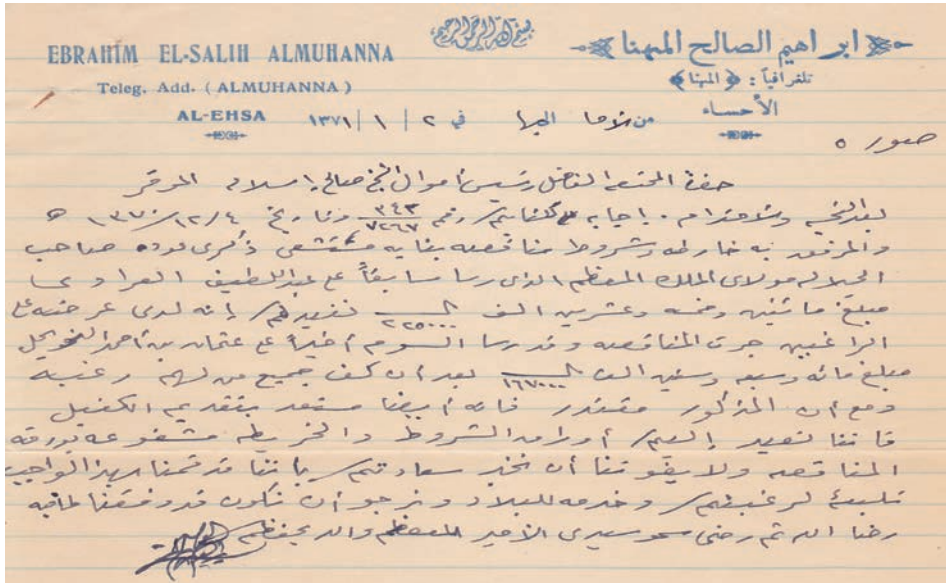 بسم الله الرحمن الرحيم
EBRAHIM EL-SALIH ALMUHANNA
ابراهيم الصالح المهنا
Teleg. Add. (ALMUHANNA)
تلغرافياً : ﴿ المهنا ﴾
AL-EHSA
الأحساء
من الاحسا الى في ٢ / ١ / ١٣٧١
صوره
حضرة المحترم الفاضل رئيس أموال الشيخ صالح إسلام الموقر
بعد التحية والاحترام . إجابه كتابكم رقم ٣٤٣/٧٢٦٧ وتاريخ ١٣٧٠/١٢/٤ ه
والمرفق به خارطه وشروط مناقصه بنايه مستشفى ذكرى عوده صاحب
الجلاله مولاي الملك المعظم الذي رسا سابقاً على عبداللطيف
مبلغ مائتين وخمسه وعشرين الف ٢٢٥٠٠٠ نفيدكم إنه لدى عرضنه على
الراغبين جرت المناقصه وقد رسا السوم أخيراً على عثمان بن أحمد
مبلغ مائه وسبعه وستين الف ١٦٧٠٠٠ بعد أن كف جميع من لهم رغبه
ومع أن المذكور مقتدر فانه أيضا مستعد بتقديم الكفيل
فاننا نعيد إليكم أوراق الشروط والخريطه مشفوعه بورقه
المناقصه ولا يفوتنا أن نخبر سعادتكم بأننا قد قمنا بهذا الواجب
تلبيةً لرغبتكم وخدمه للبلاد ونرجو أن نكون قد وفقنا لما فيه
رضا الله ثم رضى سمو سيدي الأمير المعظم والله يحفظكم